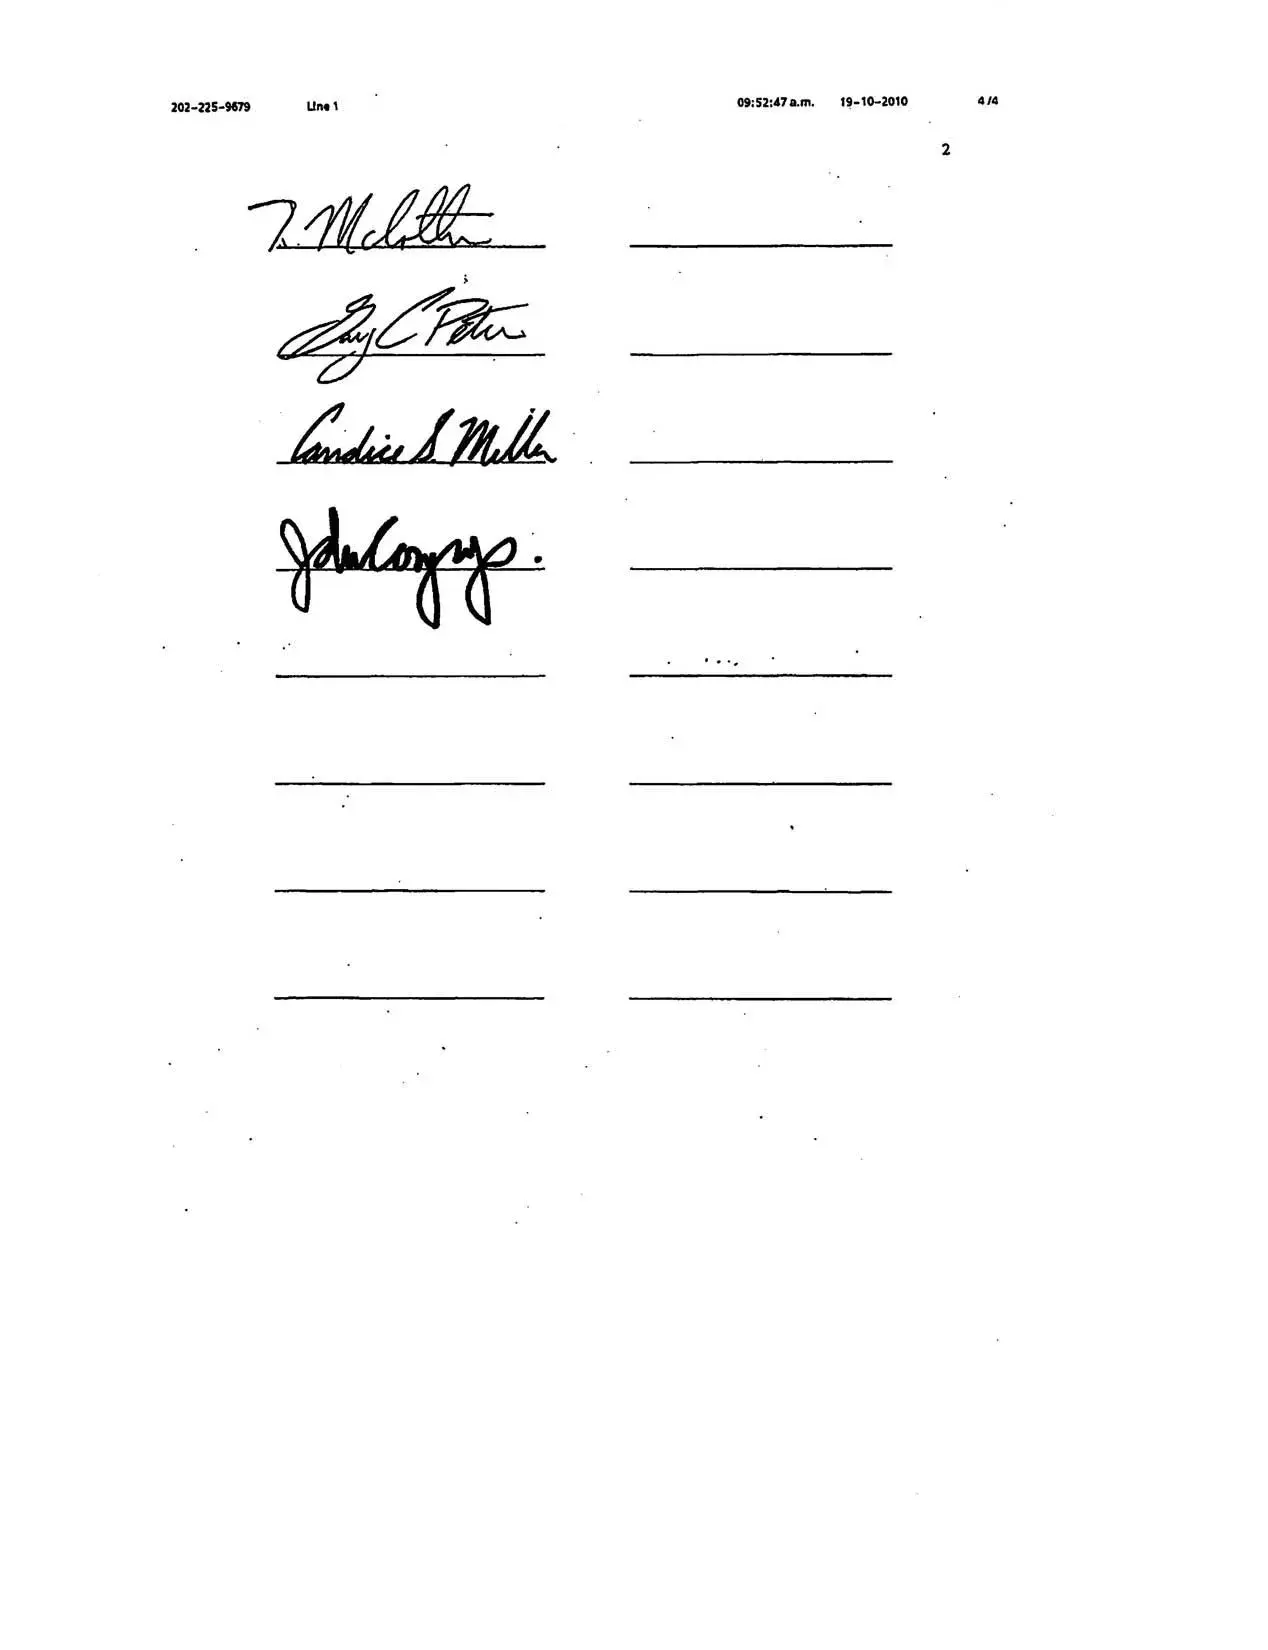 202-225-9679 Line 1 09:52:47 a.m. 19-10-2010 4/4
2
T. McCotter
Gary C Peters
Candice S. Miller
John Conyers.